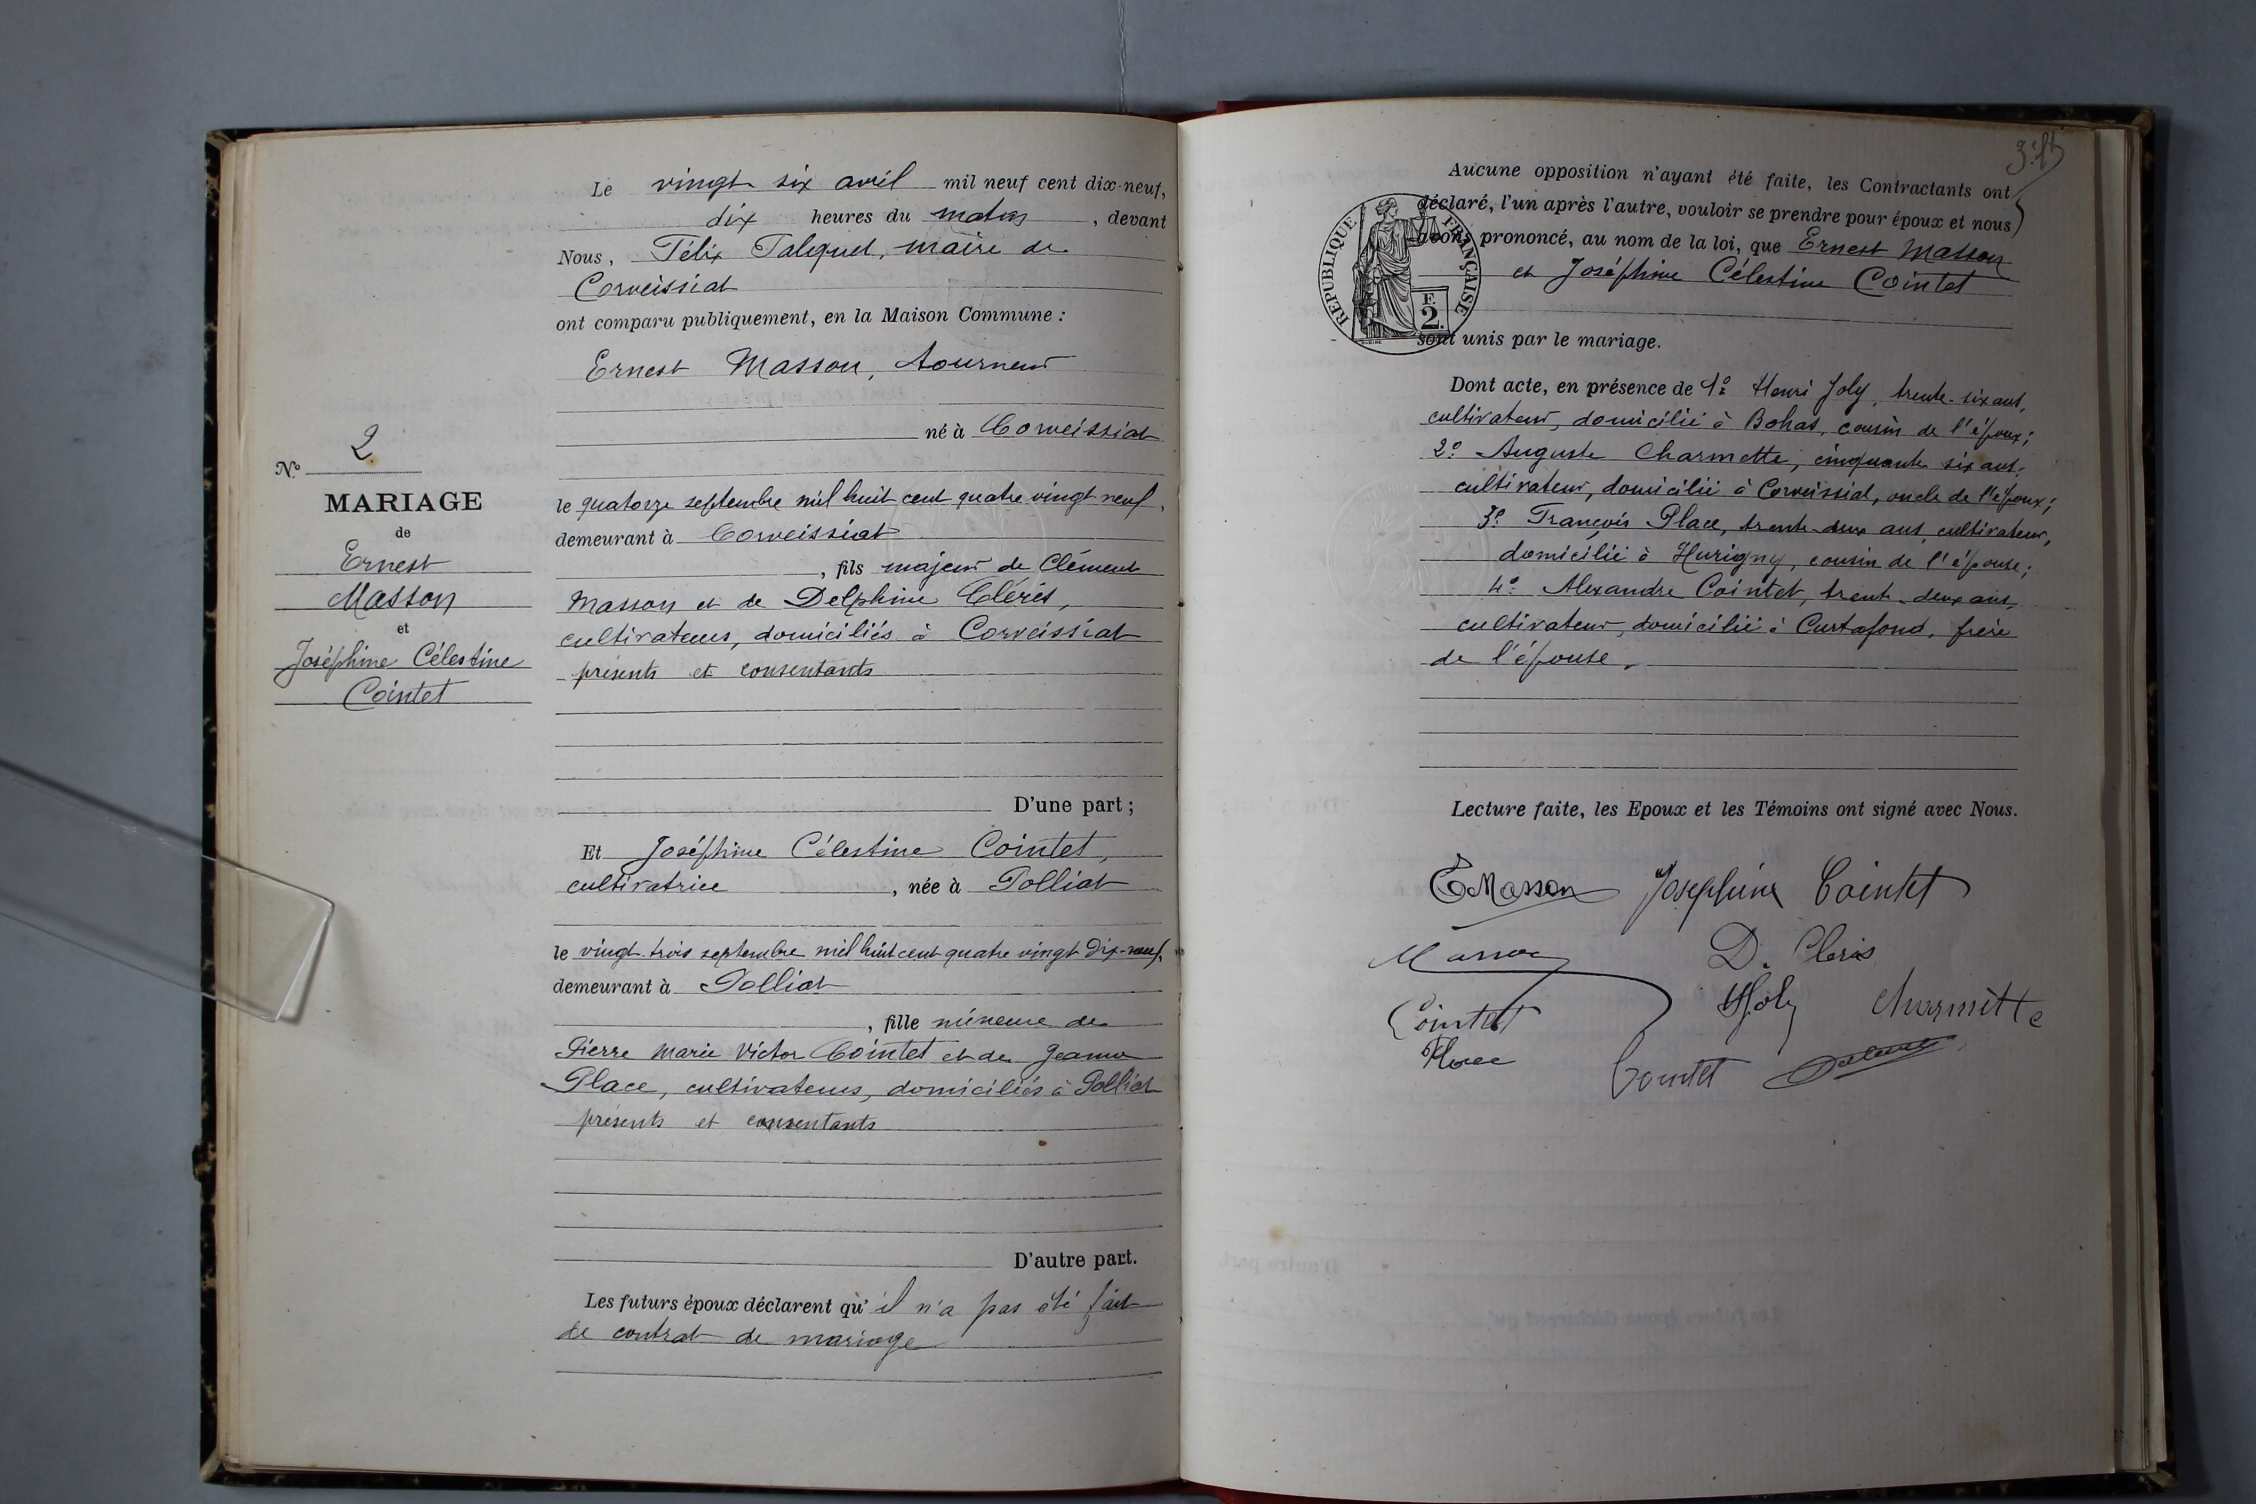 Le vingt six avril mil neuf cent dix-neuf,
dix heures du matin, devant
Nous, Félix maire de
Corveissiat
ont comparu publiquement, en la Maison Commune :
Ernest Masson, tourneur
né à Corveissiat
le quatorze septembre mil huit cent quatre vingt neuf,
demeurant à Corveissiat
, fils majeur de Clément
Masson et de Delphine Cléris,
cultivateurs, domiciliés à Corveissiat
présents et consentants
D'une part ;
Et Joséphine Célestine Cointet,
cultivatrice, née à Polliat
le vingt trois septembre mil huit cent quatre vingt dix-neuf,
demeurant à Polliat
, fille mineure de
Pierre Marie Victor Cointet et de Jeanne
Place, cultivateurs, domiciliés à Polliat
présents et consentants
D'autre part.
Les futurs époux déclarent qu'il n'a pas été fait
de contrat de mariage
N° 2
MARIAGE
de
Ernest
Masson
et
Joséphine Célestine
Cointet
Aucune opposition n'ayant été faite, les Contractants ont
déclaré, l'un après l'autre, vouloir se prendre pour époux et nous
avons prononcé, au nom de la loi, que Ernest Masson
et Joséphine Célestine Cointet
sont unis par le mariage.
RÉPUBLIQUE FRANÇAISE
F.
2.
Dont acte, en présence de 1° Henri Joly, trente-six ans,
cultivateur, domicilié à Bohas, cousin de l'époux ;
2° Auguste Charmette, cinquante six ans,
cultivateur, domicilié à Corveissiat, oncle de l'époux ;
3° François Place, trente-deux ans, cultivateur,
domicilié à Hurigny, cousin de l'épouse ;
4° Alexandre Cointet, trente-deux ans,
cultivateur, domicilié à Curtafond, frère
de l'épouse.
Lecture faite, les Epoux et les Témoins ont signé avec Nous.
E Masson Joséphine Cointet
Masson D. Cléris
Cointet H Joly Charmette
Place Cointet